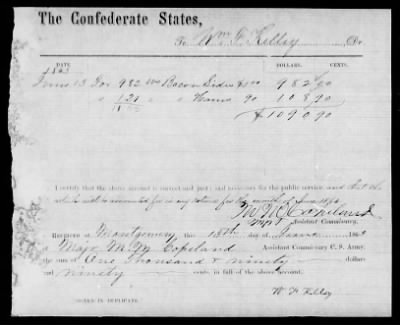 The Confederate States,
To Wm F Kelley Dr
DATE DOLLARS. CENTS.
1863
June 13 For 982 lbs Bacon Sides $1.00 982 00
" 120 " " Hams 90 108 90
$1090 90
I certify that the above account is correct and just; and necessary for the public service and that the
articles will be accounted for on my return for the month of June 1863
M M Copeland
Maj &
Assistant Commissary.
Received at Montgomery this 13th day of June 1863
of Major M. M. Copeland Assistant Commissary C. S. Army,
the sum of One Thousand & ninety dollars
and ninety cents, in full of the above account.
W F Kelley
[SIGNED IN DUPLICATE.